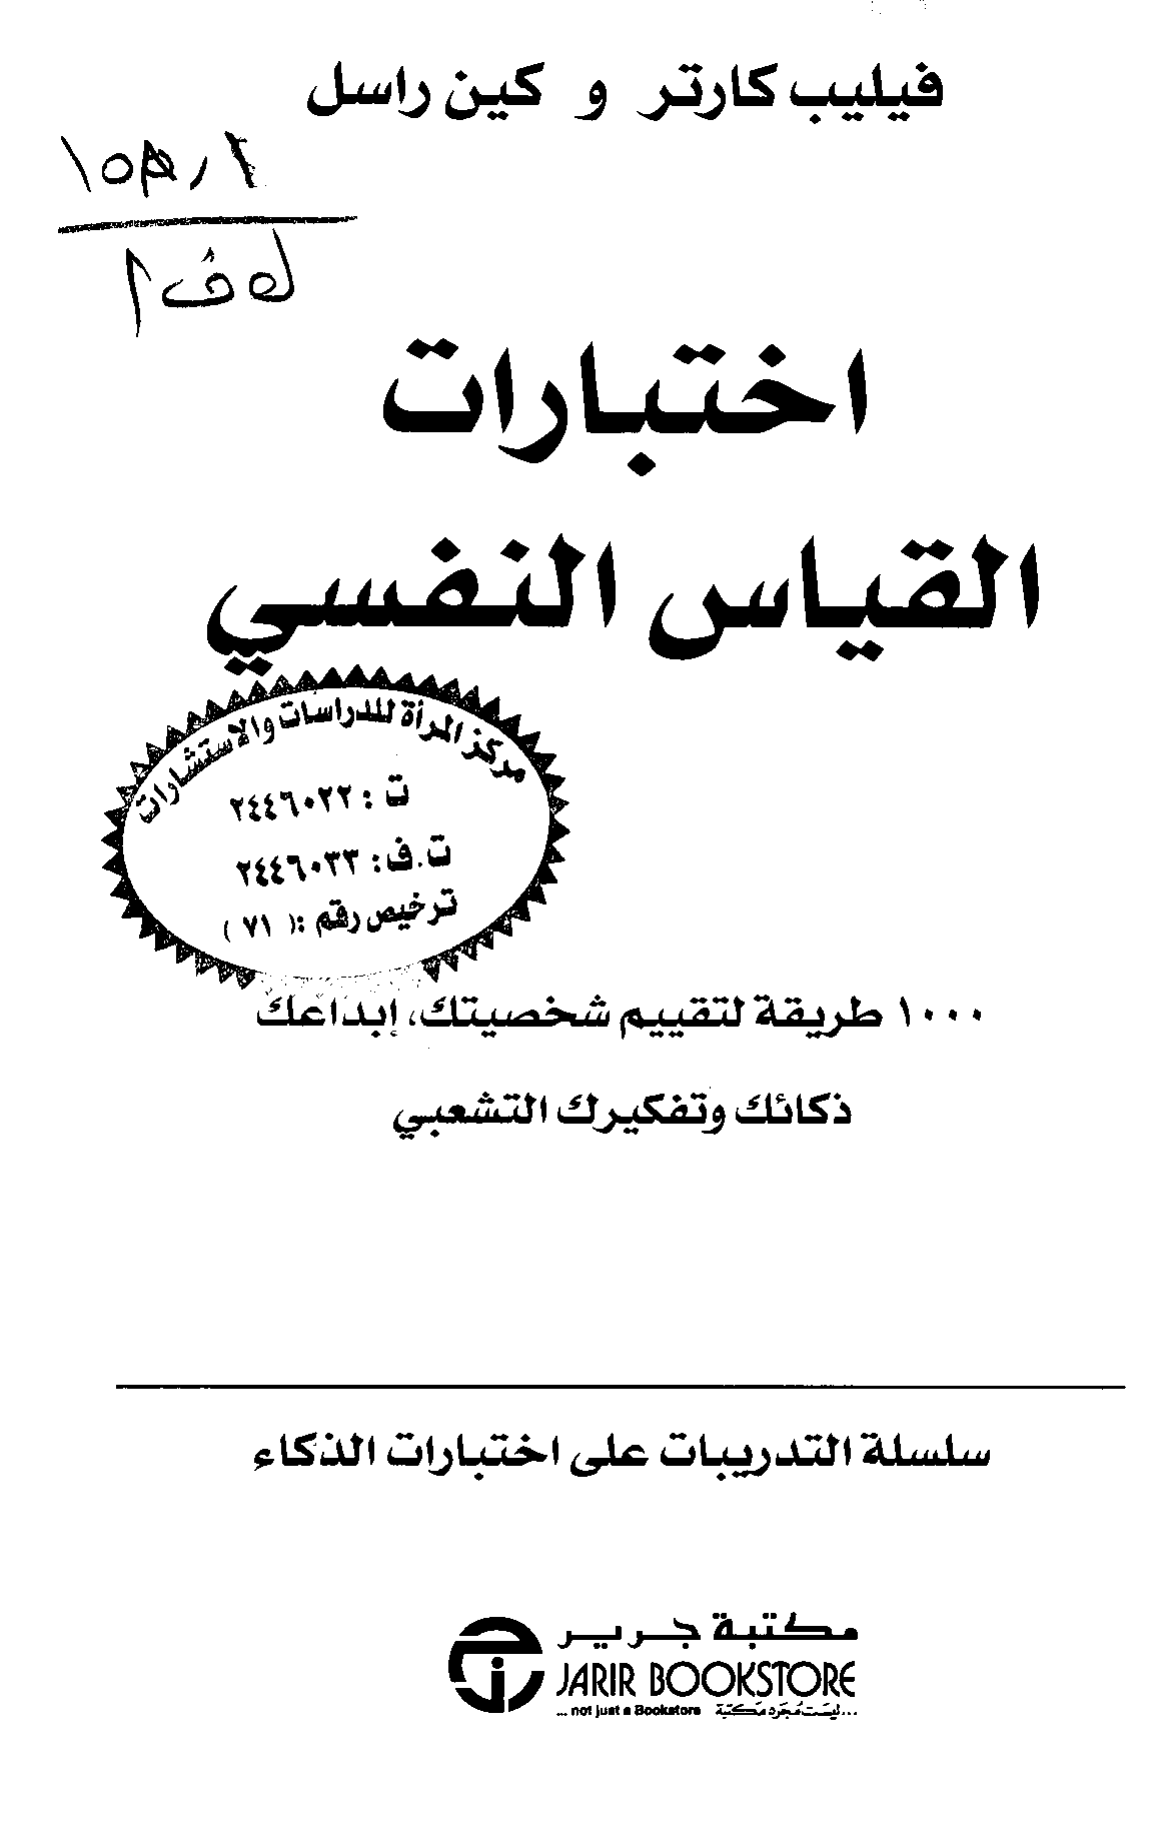 فيليب كارتر و كين راسل
اختبارات
القياس النفسي
مركز المرأة للدراسات والاستشارات
ت : ٢٤٤٦٠٢٢
ت.ف: ٢٤٤٦٠٣٣
ترخيص رقم :( ٧١ )
١٠٠٠ طريقة لتقييم شخصيتك، إبداعك
ذكائك وتفكيرك التشعبي
سلسلة التدريبات على اختبارات الذكاء
مكتبة جرير
JARIR BOOKSTORE
... not just a Bookstore ليست مجرد مكتبة...